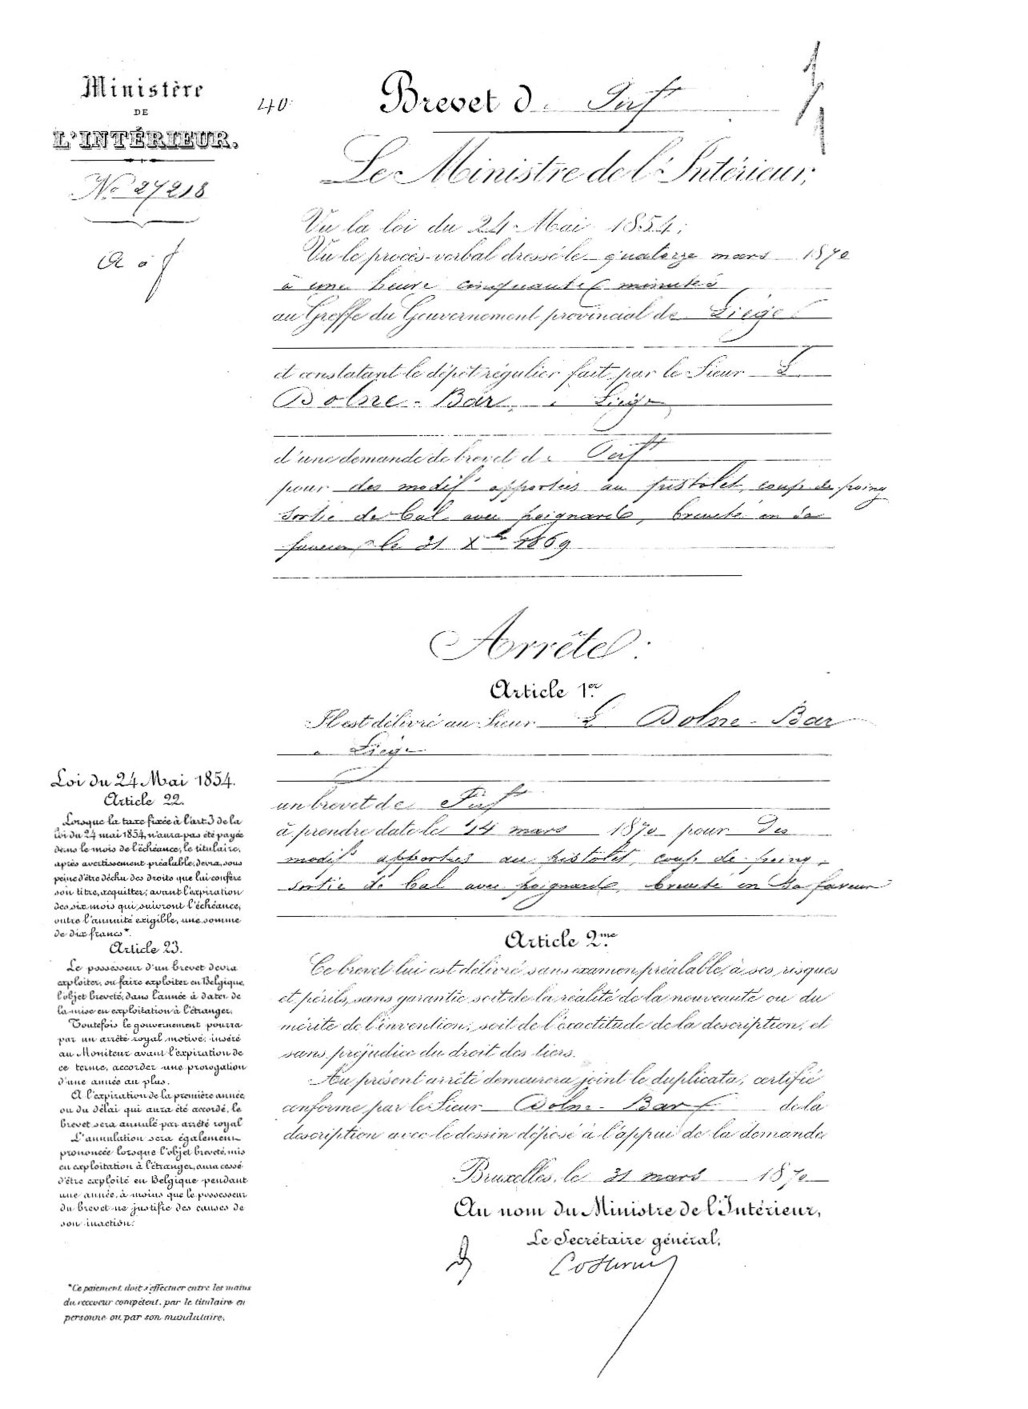 Ministère
DE
L'INTÉRIEUR.
No 27218
40
Brevet d. Perft
Le Ministre de l'Intérieur,
Vu la loi du 24 Mai 1854;
Vu le procès-verbal dressé le quatorze mars 1870
à une heure cinquante minutes
au Greffe du Gouvernement provincial de Liége
et constatant le dépôt régulier fait par le Sieur L
Dolne-Bar, à Liége
d'une demande de brevet de Perft
pour des modifs apportées au pistolet, coup de poing
sortie de bal avec poignard, breveté en sa
faveur le 31 Xbre 1869
Arrête:
Article 1er
Il est délivré au Sieur L Dolne-Bar
à Liége
un brevet de Perft
à prendre date le 14 mars 1870 pour des
modifs apportées au pistolet, coup de poing,
sortie de bal avec poignard, breveté en sa faveur
Article 2me
Ce brevet lui est délivré sans examen préalable, à ses risques
et périls, sans garantie soit de la réalité de la nouveauté ou du
mérite de l'invention, soit de l'exactitude de la description, et
sans préjudice du droit des tiers.
Au présent arrêté demeurera joint le duplicata, certifié
conforme par le Sieur Dolne-Bar de la
description avec le dessin déposé à l'appui de la demande
Bruxelles, le 31 mars 1870
Au nom du Ministre de l'Intérieur,
Le Secrétaire général,
Loi du 24 Mai 1854.
Article 22.
Lorsque la taxe fixée à l'art 3 de la
loi du 24 mai 1854, n'aura pas été payée
dans le mois de l'échéance, le titulaire,
après avertissement préalable, devra, sous
peine d'être déchu des droits que lui confère
son titre, acquitter, avant l'expiration
des six mois qui suivront l'échéance,
outre l'annuité exigible, une somme
de dix francs*.
Article 23.
Le possesseur d'un brevet devra
exploiter, ou faire exploiter en Belgique,
l'objet breveté, dans l'année à dater de
la mise en exploitation à l'étranger.
Toutefois le gouvernement pourra
par un arrêté royal motivé, inséré
au Moniteur avant l'expiration de
ce terme, accorder une prorogation
d'une année au plus.
A l'expiration de la première année
ou du délai qui aura été accordé, le
brevet sera annulé par arrêté royal
L'annulation sera également
prononcée lorsque l'objet breveté, mis
en exploitation à l'étranger, aura cessé
d'être exploité en Belgique pendant
une année, à moins que le possesseur
du brevet ne justifie des causes de
son inaction.
*Ce paiement doit s'effectuer entre les mains
du receveur compétent, par le titulaire en
personne ou par son mandataire.